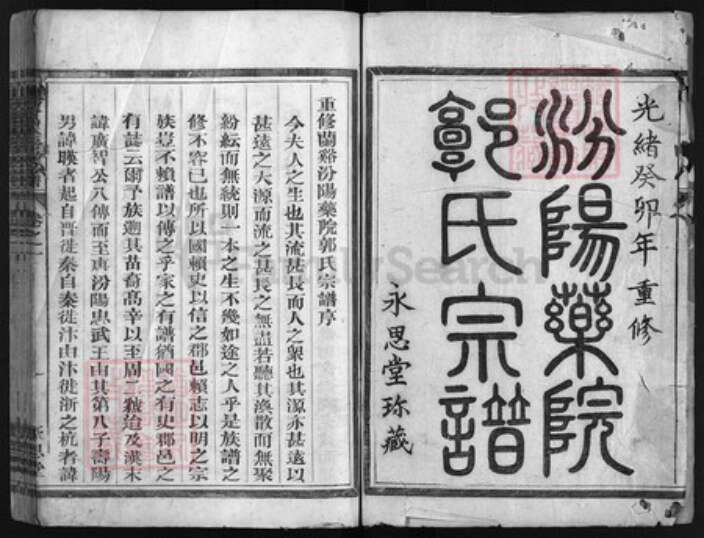 光緒癸卯年重修
汾陽藥院
郭氏宗譜
永思堂珍藏
重修蘭谿汾陽藥院郭氏宗譜序
今夫人之生也其流甚長而人之衆也其源亦甚遠以
甚遠之大源而流之甚長之無盡若聽其渙散而無聚
紛紜而無統則一本之生不幾如途之人乎是族譜之
修不容已也所以國賴史以信之郡邑賴志以明之宗
族豈不賴譜以傳之乎家之有譜猶國之有史郡邑之
有誌云爾予族遡其苗裔高辛以至周二虢迨及漢末
諱廣智公八傳而至唐汾陽忠武王由其第八子壽陽
男諱暎者起自晉徙秦自秦徙汴由汴徙浙之杭者諱
FamilySearch